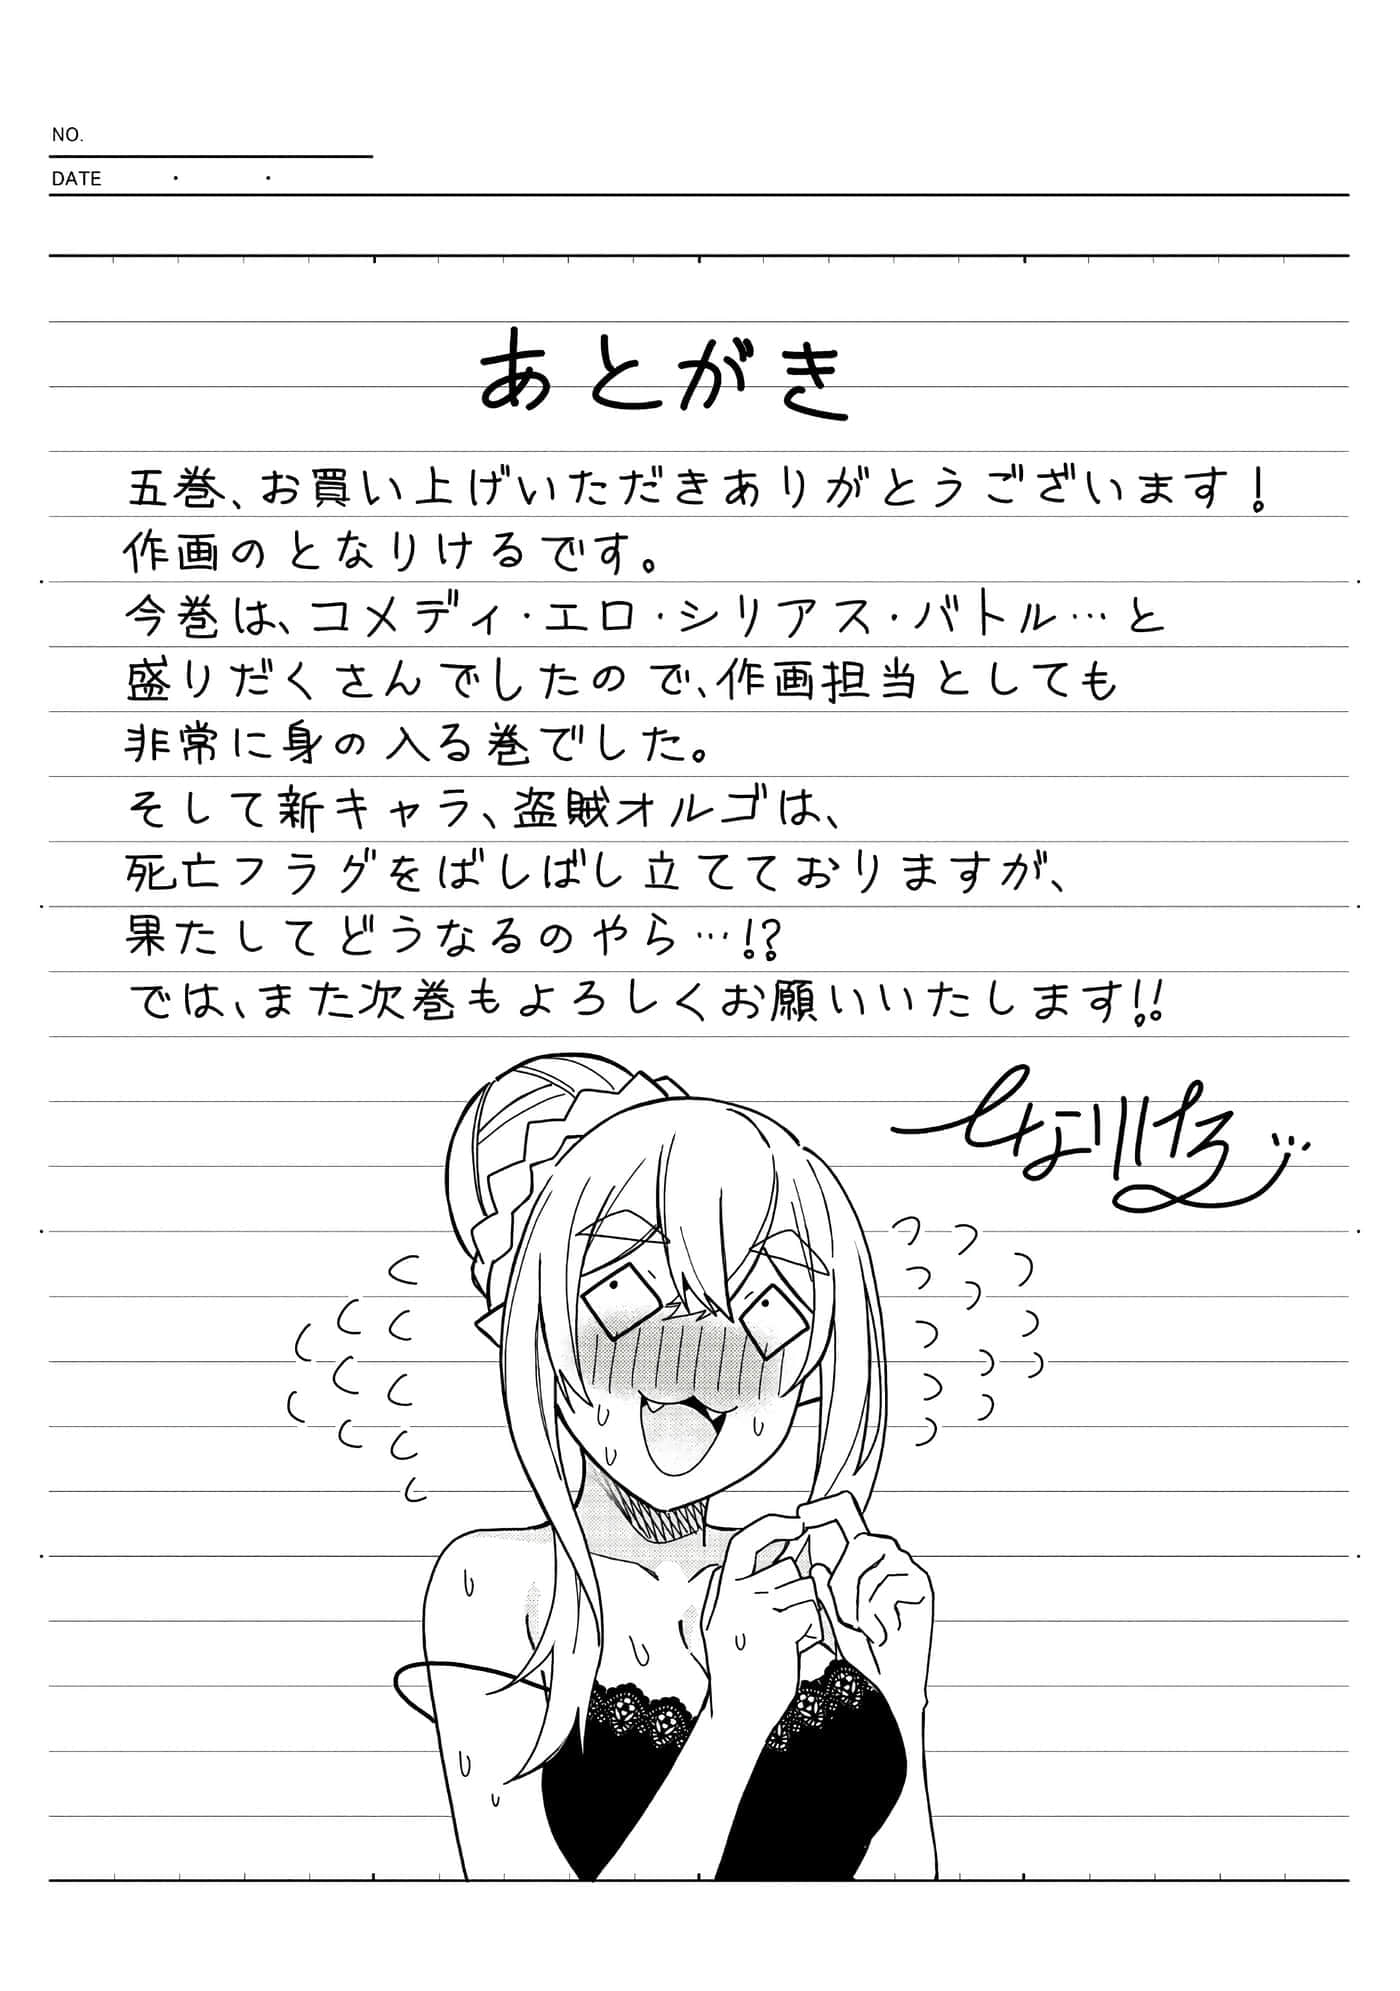 NO.
DATE ・ ・
あとがき
五巻、お買い上げいただきありがとうございます!
作画のとなりけるです。
今巻は、コメディ・エロ・シリアス・バトル…と
盛りだくさんでしたので、作画担当としても
非常に身の入る巻でした。
そして新キャラ、盗賊オルゴは、
死亡フラグをばしばし立てておりますが、
果たしてどうなるのやら…!?
では、また次巻もよろしくお願いいたします!!
となりける